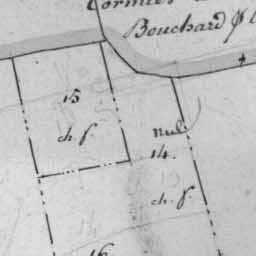 Cormier
Bouchard
15
ch. f.
nul
14.
ch. f.
16